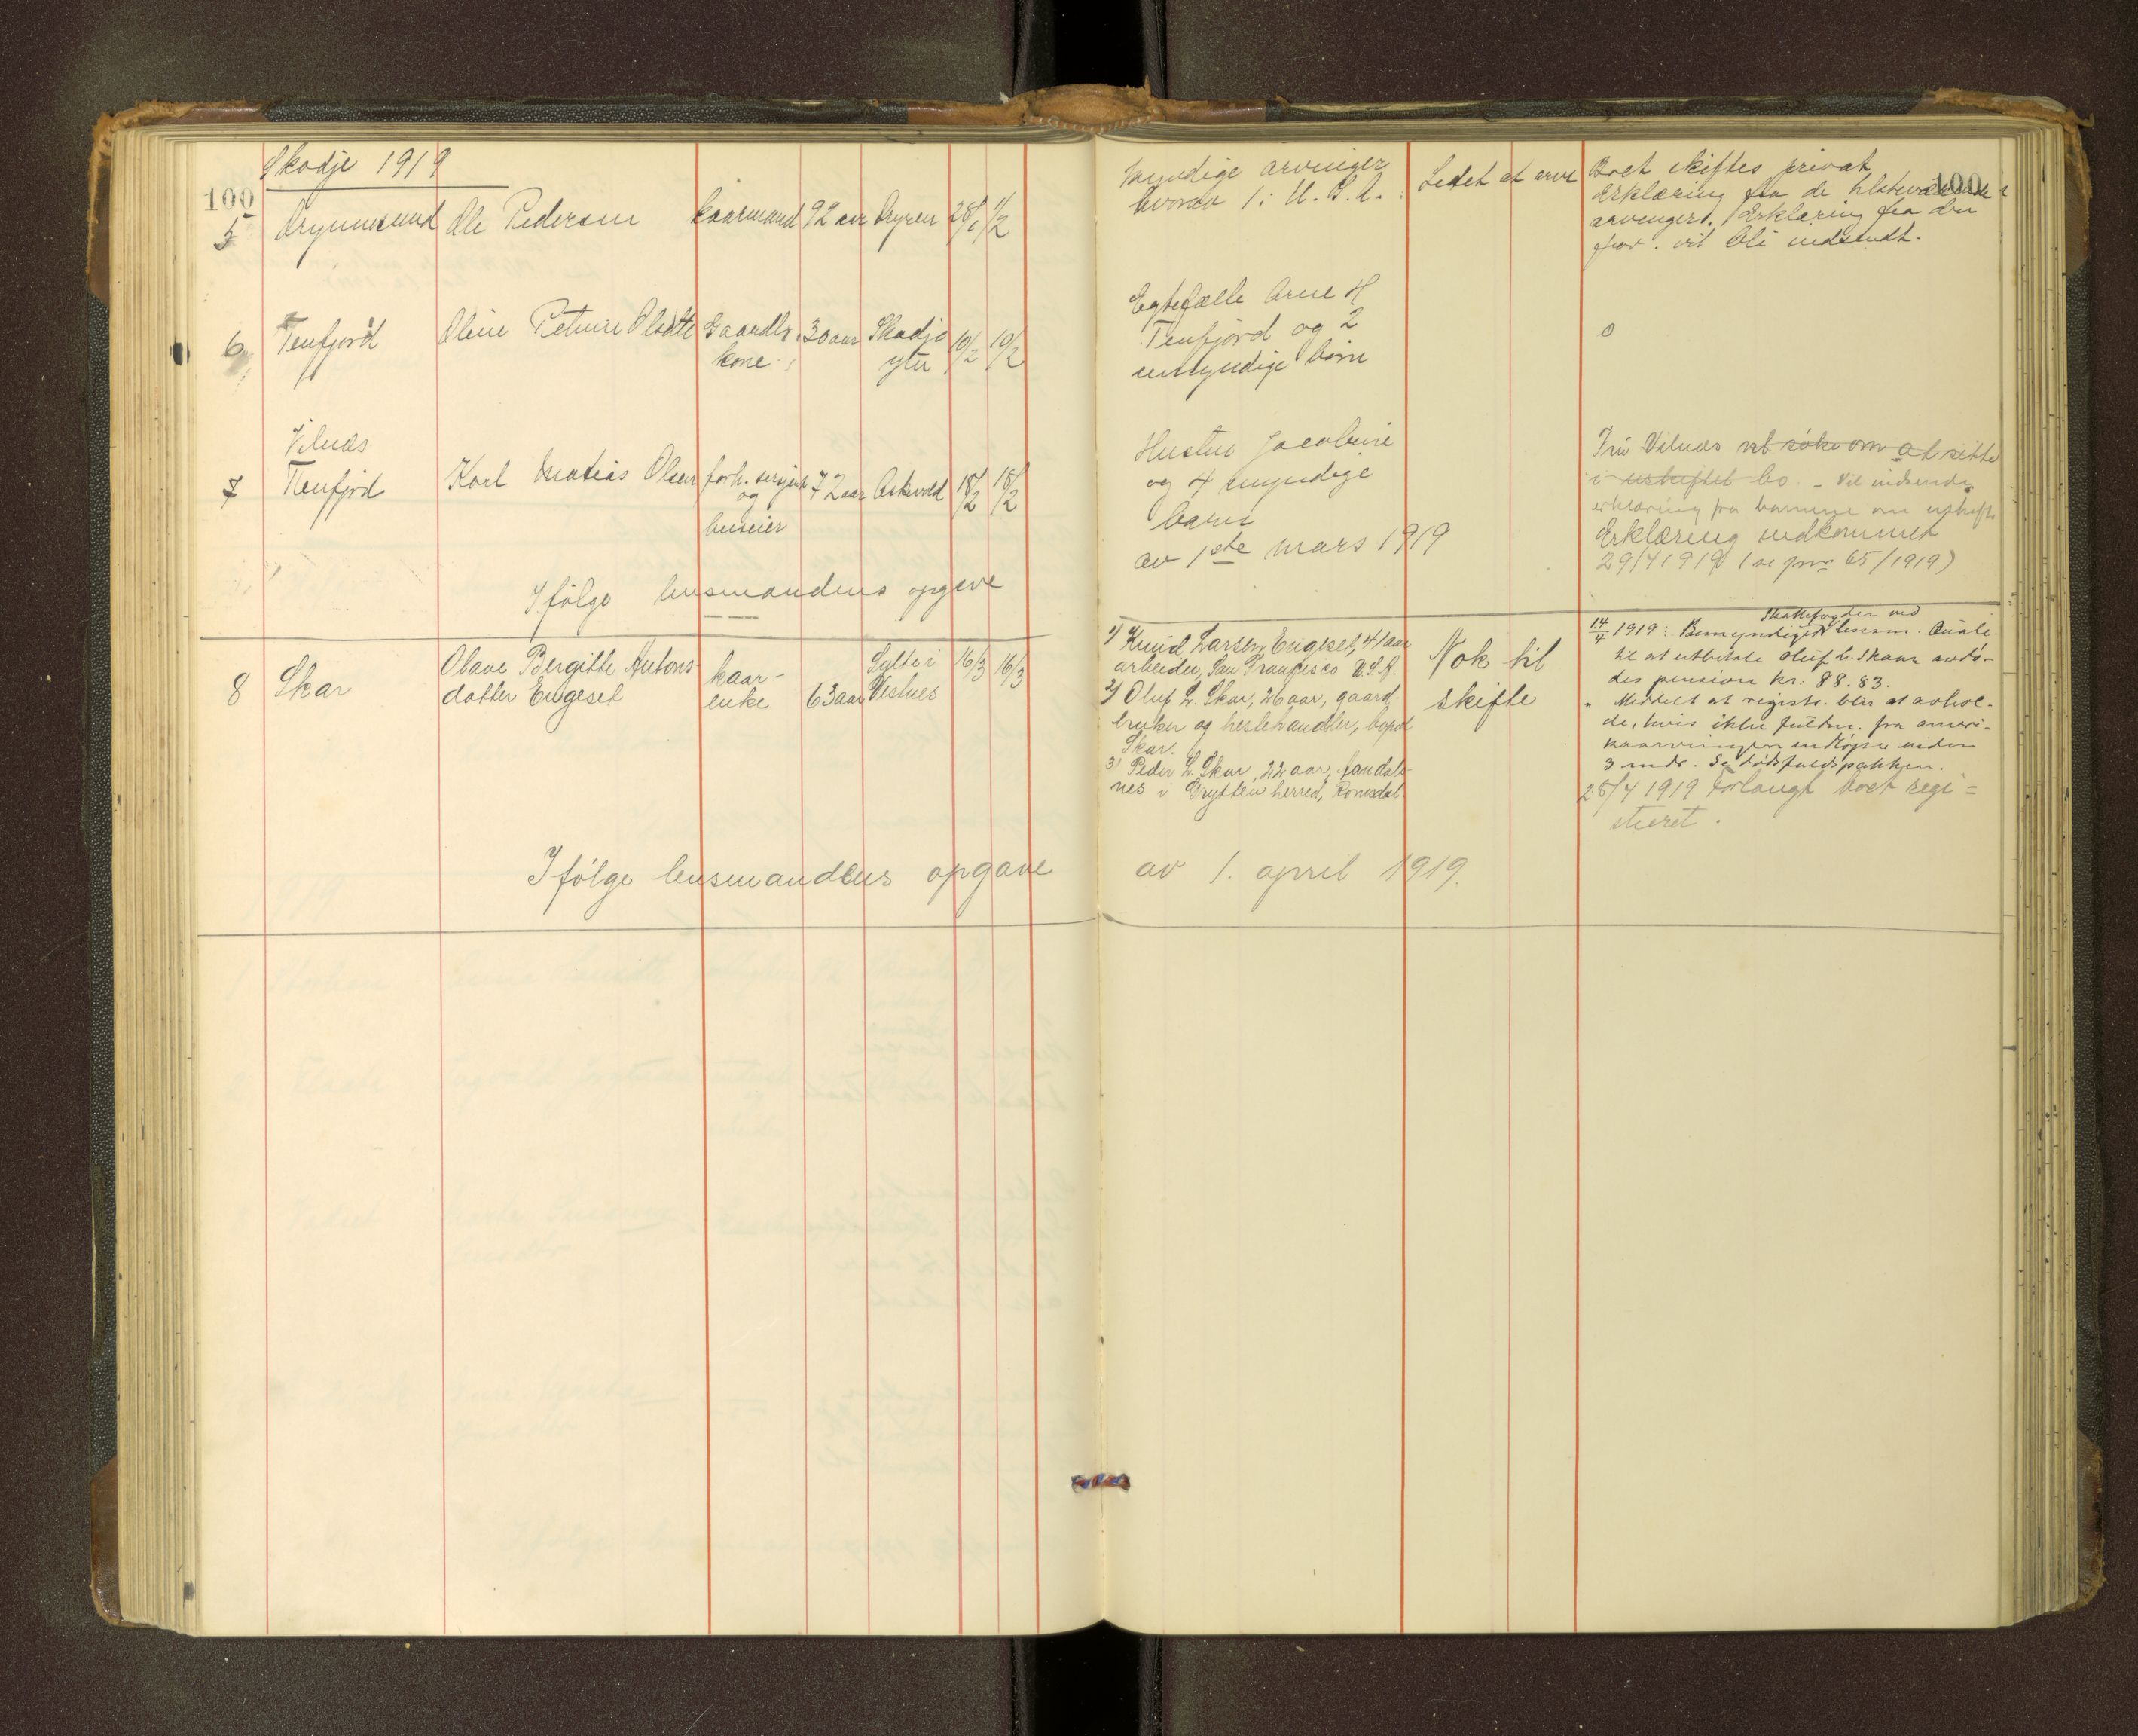 Skodje 1919
100
5 Drynnesund Ole Pedersen kaarmand 92 aar Dryren 28/1 1/2
Myndige arvinger
hvorav 1 i U.S.A.
Boet skiftes privat
100
Erklæring fra de
arvinger. Erklæring fra den
vil bli indsendt.
6 Tenfjord Oline Petrine Olsdtr Gaardbr. 30 aar Skodje 10/2 10/2
kone ytre
Egtefælle Arne H
Tenfjord og 2
umyndige børn
0
Vilnæs
7 Tenfjord Karl Matias Olsen forh. sersjent 72 aar Askevold 18/2 18/2
og
huseier
Hustru Jacobine
og 4 myndige
barn
Fru Vilnæs vil søke om at sitte
i uskiftet bo. - Vil indsende
erklæring fra barnene om uskifte
Erklæring indkommet
29/4 1919 (se pnr 65/1919)
Ifølge lensmandens opgave av 1ste mars 1919
8 Skar Olave Bergitte Antons- kaar- 63 aar Sylte i 16/3 16/3
datter Engeset enke Vestnes
1) Knud Larsen Engeset, 41 aar
arbeider, San Francisco U.S.A.
2) Oluf L. Skar, 26 aar, gaard
bruker og hestehandler, bopd
Skar.
3) Peder L. Skar, 22 aar, Aandals-
nes i Grytten herred, Romsdal.
Nok til
skifte
Skattefogden ved
14/4 1919: Bemyndiget lensm.
til at utbetale Oluf L. Skaar avdø-
des pension kr: 88.83.
" Meddelt at registr. blir at avhol-
de, hvis ikke fuldm. fra ameri-
kaarvingen indløper inden
3 mdr. Se dødsfaldspakken.
25/4 1919 forlangt boet regi=
streret.
Ifølge lensmandens opgave av 1. april 1919.